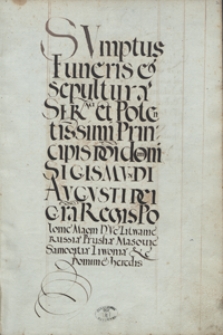 SVmptus
Funeris et
sepulturæ
Ser.mi et Poten
tissimi Prin
cipis D̄ni D̄om
SIGISMVNDI
AVGVSTI DEI
Gr̄a Regis Po
loniæ Magni Ducis Litvaniæ
Russiæ Prussiæ Masoviæ
Samogitiæ Livoniæ &c
Domini et heredis